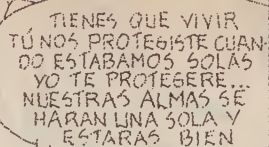 TIENES QUE VIVIR
TÚ NOS PROTEGISTE CUAN-
DO ESTABAMOS SOLAS
YO TE PROTEGERE...
NUESTRAS ALMAS SE
HARAN UNA SOLA Y
ESTARAS BIEN